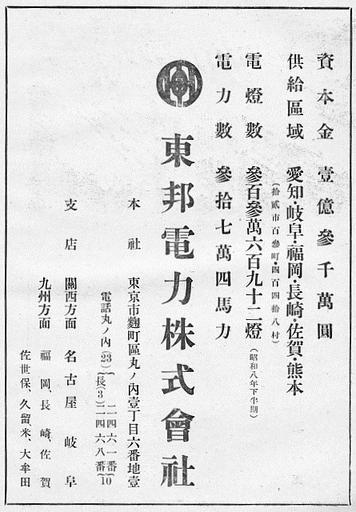 資本金 壹億參千萬圓
供給區域 愛知・岐阜・福岡・長崎・佐賀・熊本
(拾貳市百參町・四百四拾八村)
電燈數 參百參萬六百九十二燈(昭和八年下半期)
電力數 參拾七萬四馬力
東邦電力株式會社
本社 東京市麴町區丸ノ內壹丁目六番地壹
電話丸ノ內(23)
二四六一番(10
長(3)二四六八番
支店 關西方面 名古屋 岐阜
九州方面 福岡、長崎、佐賀
佐世保、久留米、大牟田